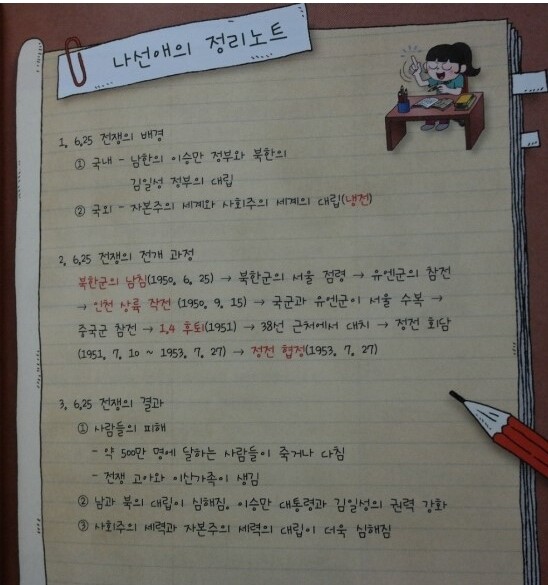 나선애의 정리노트
1. 6.25 전쟁의 배경
① 국내 - 남한의 이승만 정부와 북한의
김일성 정부의 대립
② 국외 - 자본주의 세계와 사회주의 세계의 대립(냉전)
2. 6.25 전쟁의 전개 과정
북한군의 남침(1950. 6. 25) → 북한군의 서울 점령 → 유엔군의 참전
→ 인천 상륙 작전 (1950. 9. 15) → 국군과 유엔군이 서울 수복 →
중국군 참전 → 1.4 후퇴(1951) → 38선 근처에서 대치 → 정전 회담
(1951. 7. 10 ~ 1953. 7. 27) → 정전 협정(1953. 7. 27)
3. 6.25 전쟁의 결과
① 사람들의 피해
- 약 500만 명에 달하는 사람들이 죽거나 다침
- 전쟁 고아와 이산가족이 생김
② 남과 북의 대립이 심해짐. 이승만 대통령과 김일성의 권력 강화
③ 사회주의 세력과 자본주의 세력의 대립이 더욱 심해짐